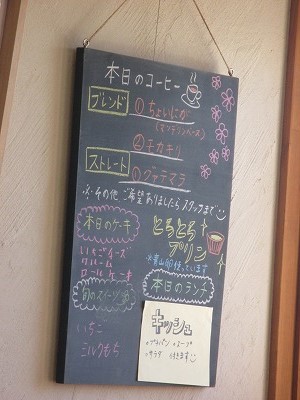 本日のコーヒー
ブレンド
①ちょいにが
(マンデリンベース)
②チカチリ
ストレート
①グァテマラ
※その他 ご希望ありましたら スタッフまで
本日のケーキ
いちごチーズ
タルト
ロールケーキ
とろとろ
プリン
※青山卵使っています
旬のスイーツ
いちご
ミルクもち
本日のランチ
キッシュ
プチパン スープ
サラダ 付きます